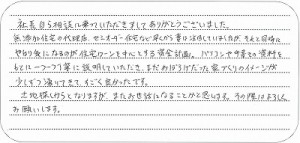 社長自ら相談に乗っていただきましてありがとうございました。
無添加住宅の代理店、セミオーダー住宅など早くから着目はしていましたが、そえと同時に
やはり気になるのが住宅ローンを中心とする資金計画。パソコンや事前の資料を
もとに一つ一つ丁寧に説明していただき、まだおぼろげだった家づくりのイメージが
少しずつ湧いてきて、すごく良かったです。
土地探しからとなりますが、またお世話になることかと思います。その際はよろしく
お願いします。